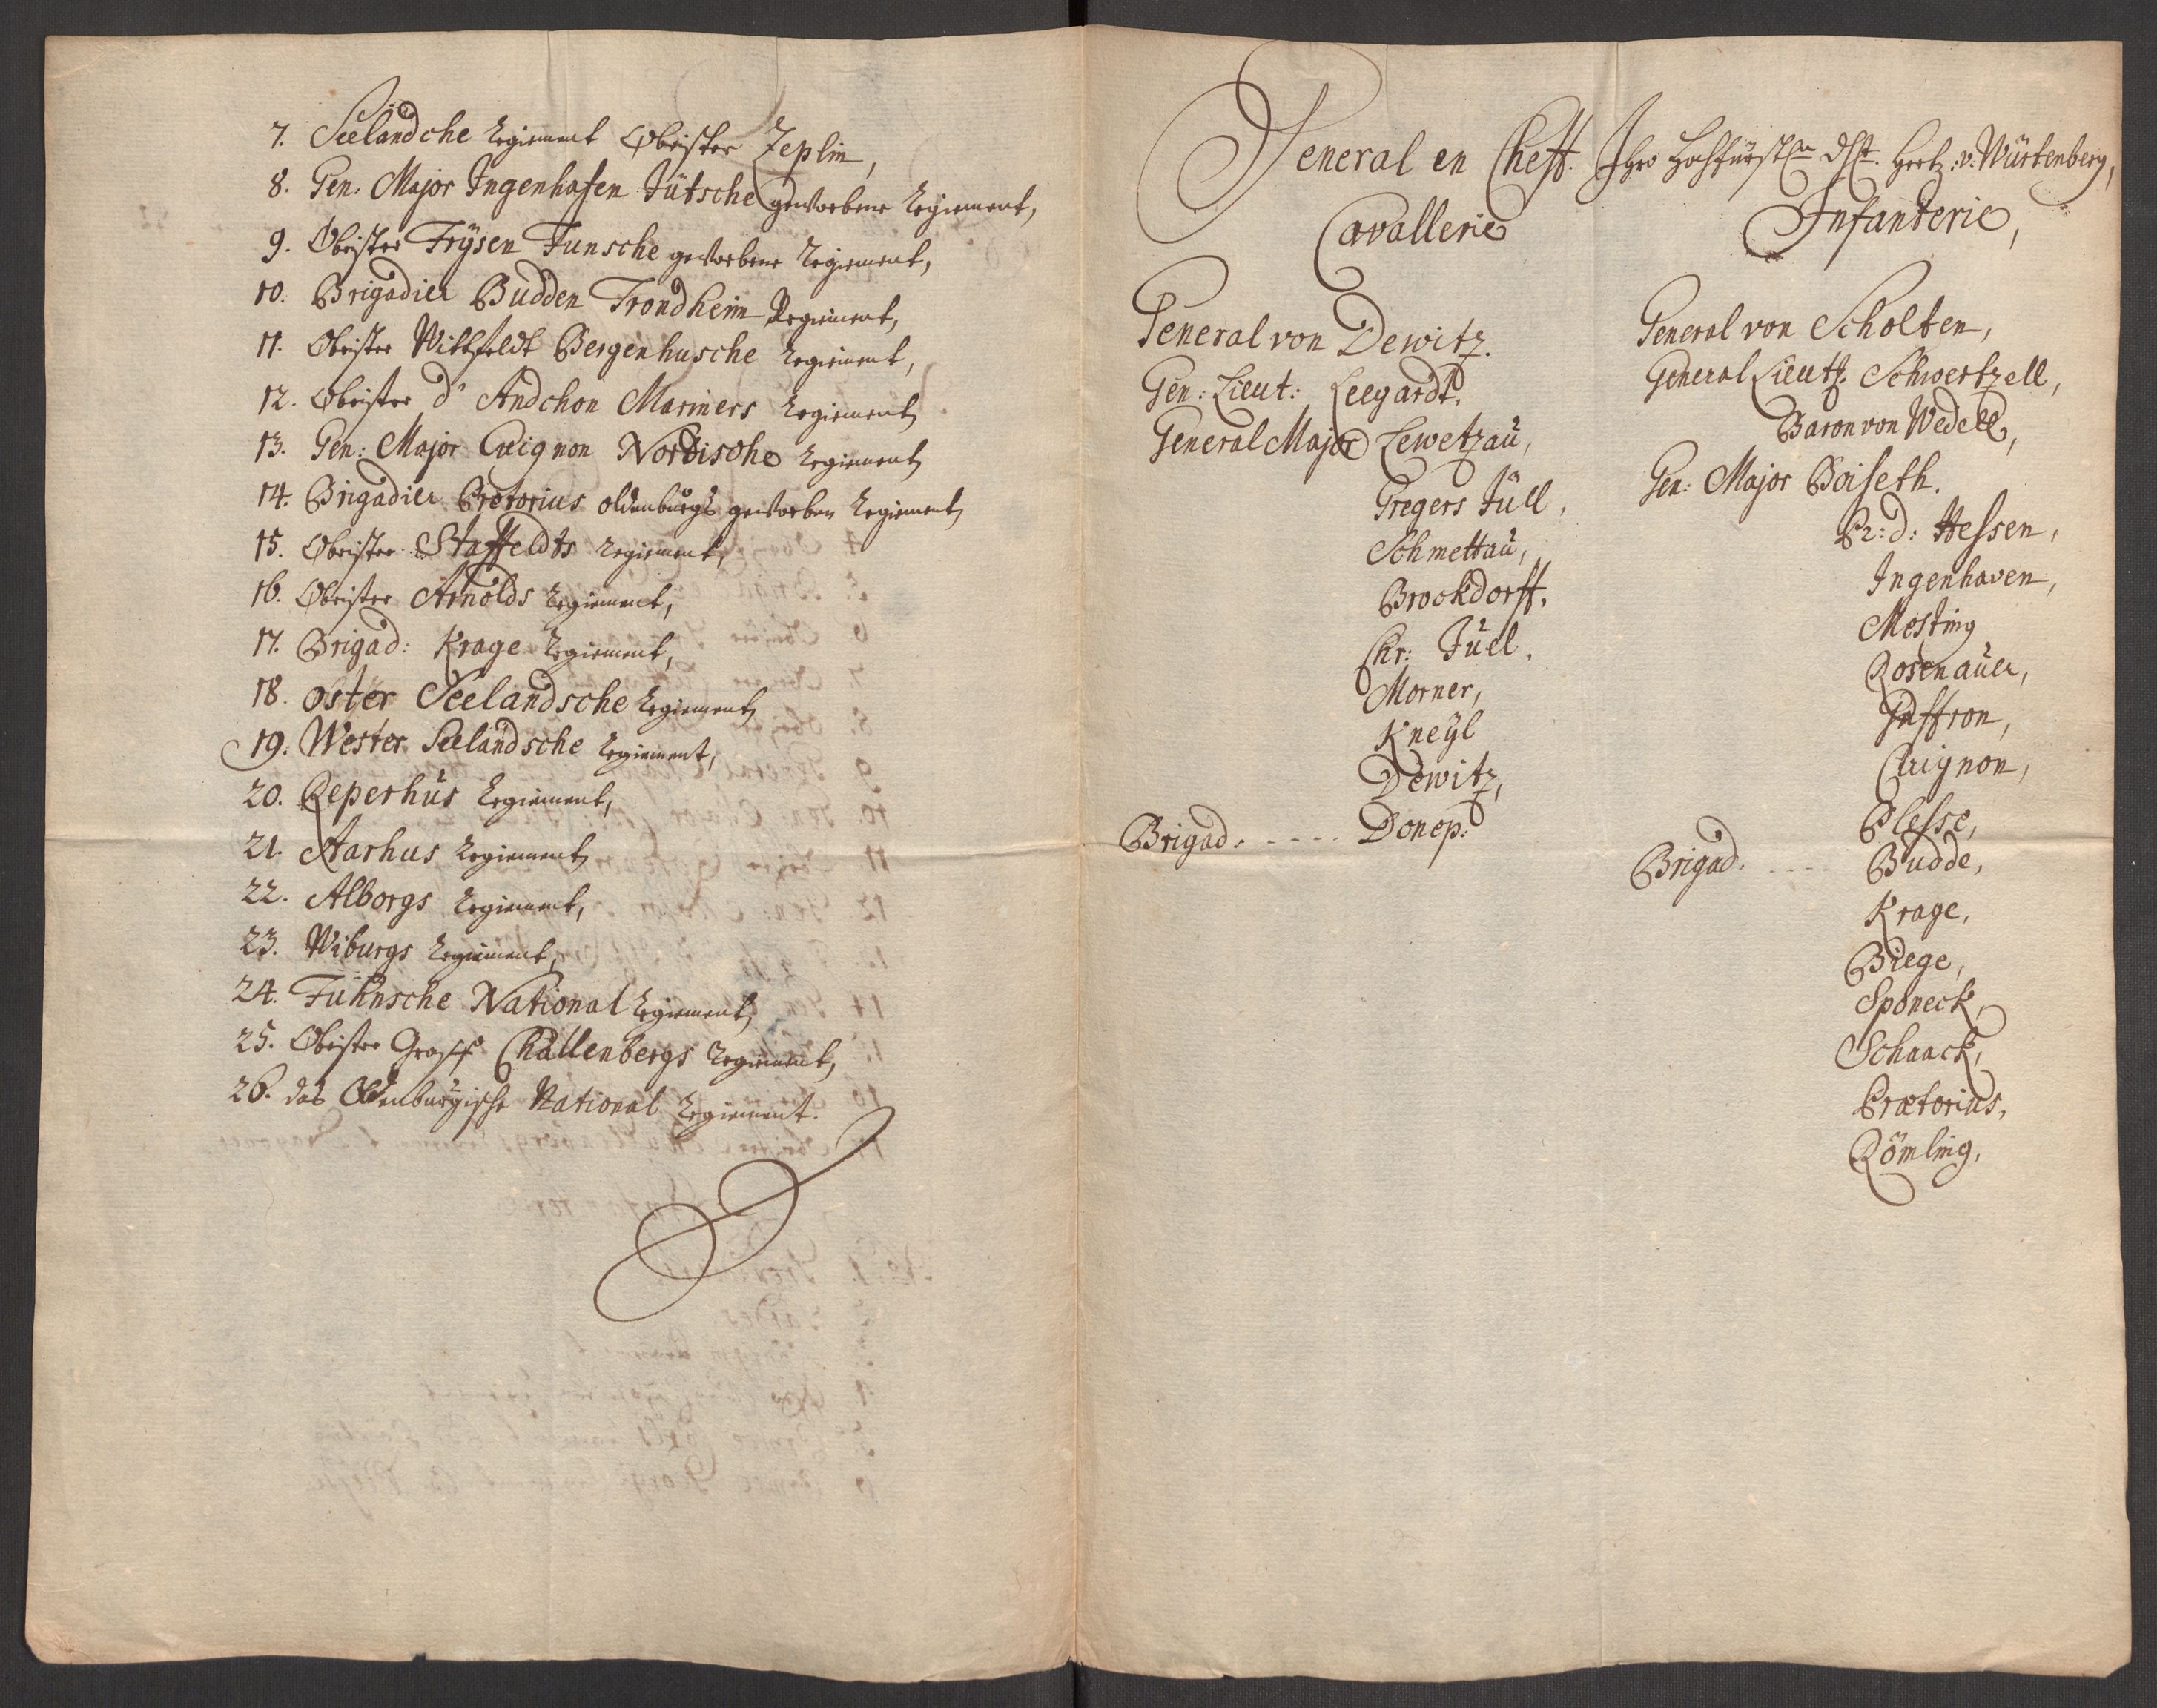 7. Seelandche Regiment Obrister Zeplin,
8. Gen: Major Ingenhafen Jütsche geworbene Regiment,
9. Obrister Frÿsen Funsche geworbene Regiment,
10. Brigadier Budden Trondheim Regiment,
11. Obrister Wittfeldt Bergenhusche Regiment,
12. Obrister d' Andchon Mariners Regiment,
13. Gen: Major Cuignon Nordische Regiment,
14. Brigadier Pretorius oldenburgs geworben Regiment,
15. Obrister Staffeldts Regiment,
16. Obrister Arnolds Regiment,
17. Brigad: Krage Regiment,
18. oster Seelandsche Regiment,
19. Wester Seelandsche Regiment,
20. Reperhus Regiment,
21. Aarhus Regiment,
22. Alborgs Regiment,
23. Wiburgs Regiment,
24. Fühnsche National Regiment,
25. Obrister Graff Challenbergs Regiment,
26. das Oldenburgische National Regiment.
General en Cheff. Ihro Hochfürstln dht. Hertz: v: Würtenberg,
Cavallerie
General von Dewitz.
Gen: Lieut: Leegardt.
General Major Lewetzau,
Gregers Jull,
Schmettau,
Brockdorff.
Chr: Juel.
Morner,
Kneÿl
Dewitz,
Brigad. - - - - Donep:
Infanterie,
General von Scholten,
General Lieut: Schwertzell,
Baron von Wedell,
Gen: Major Boiseth.
Pr: d: Hessen,
Ingenhaven,
Mosting
Rosenauer,
Guffron,
Cuignon,
Plesse,
Brigad. - - - - Budde,
Krage,
Briege,
Sponeck,
Schaack,
Prætorius,
Römling,